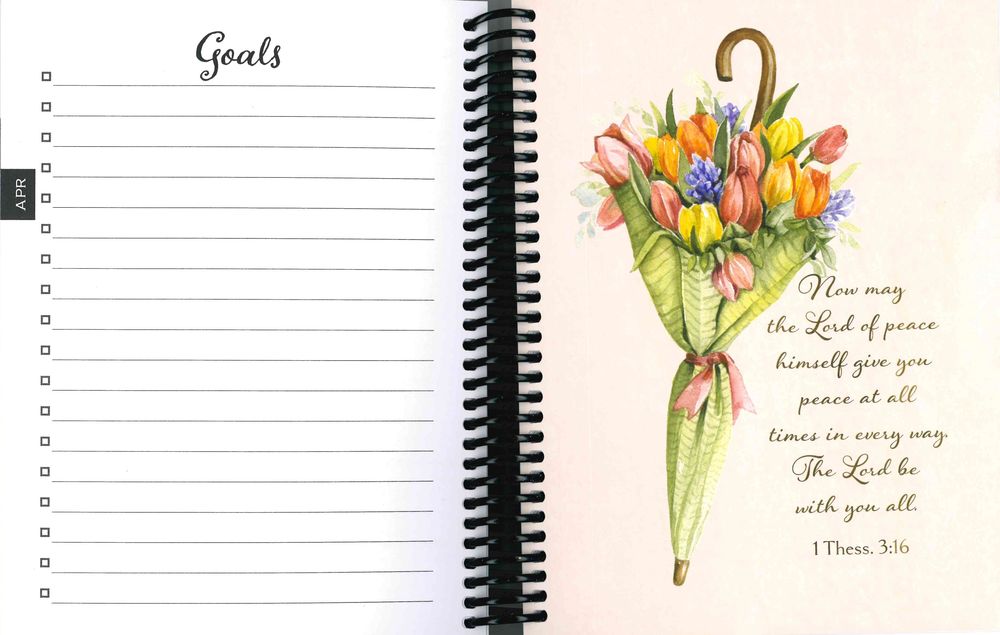 Goals
APR
Now may
the Lord of peace
himself give you
peace at all
times in every way.
The Lord be
with you all.
1 Thess. 3:16